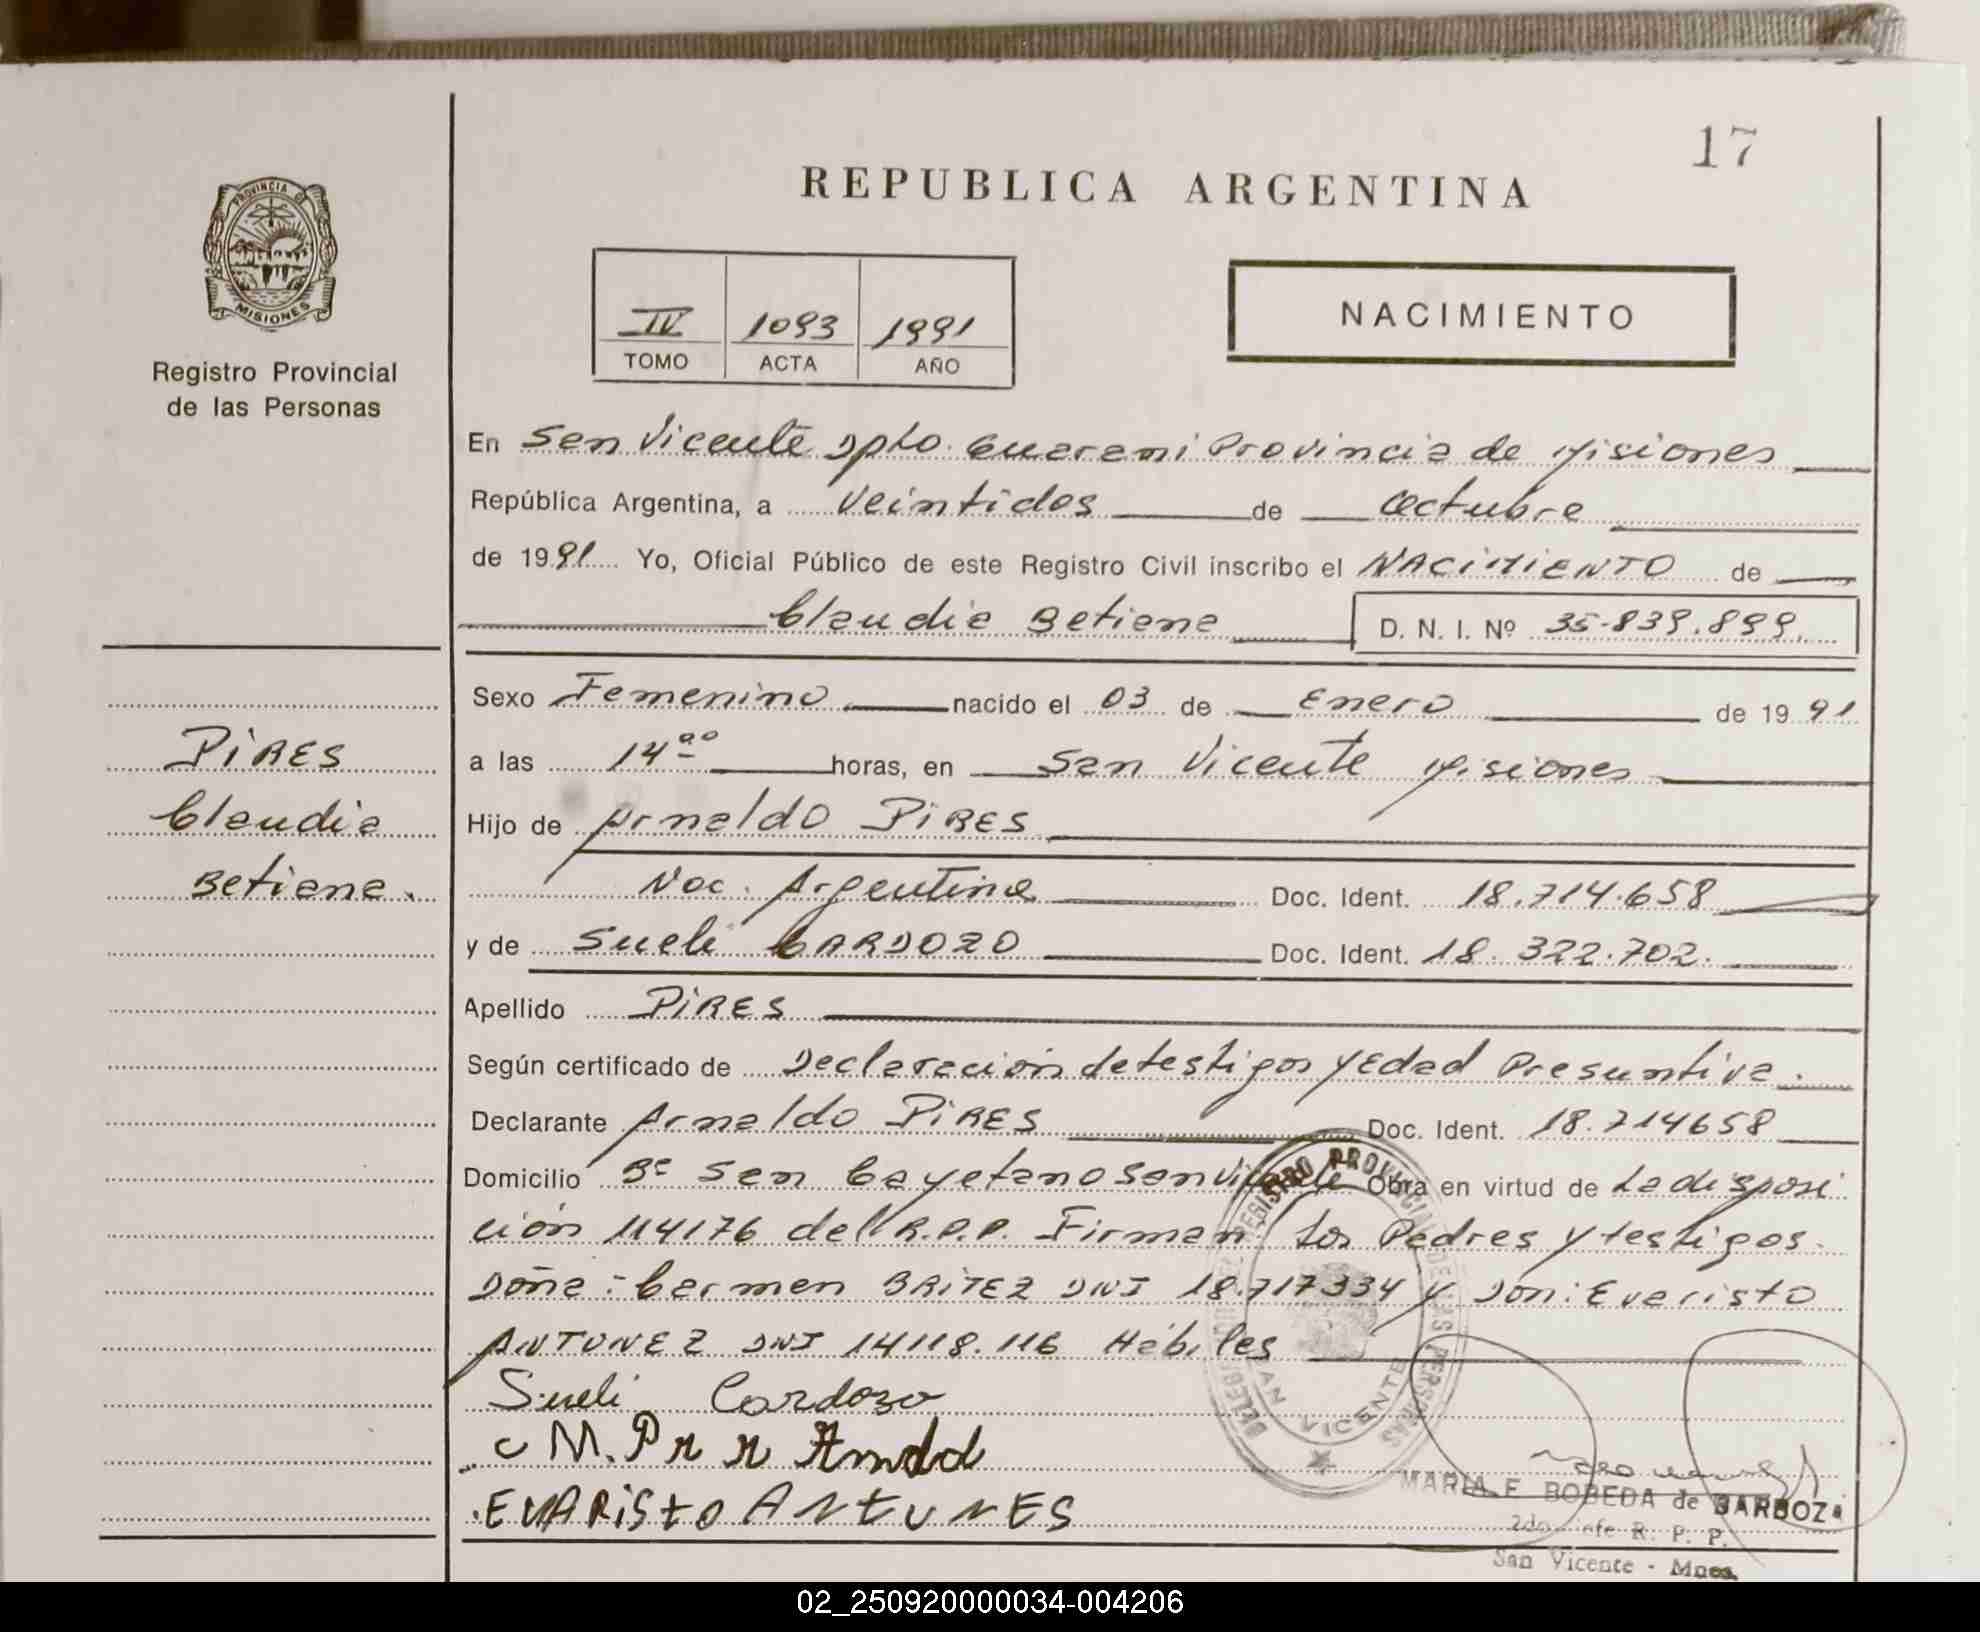 17
REPUBLICA ARGENTINA
PROVINCIA DE
MISIONES
Registro Provincial
de las Personas
IV 1093 1991
TOMO ACTA AÑO
NACIMIENTO
En San Vicente Dpto. Guarani Provincia de Misiones
República Argentina, a veintidos de Octubre
de 1991 Yo, Oficial Público de este Registro Civil inscribo el NACIMIENTO de
Claudia Betiana D. N. I. Nº 35.839.899.
Sexo Femenino nacido el 03 de Enero de 1991
PIRES
a las 14 00 horas, en San Vicente Misiones
Claudia
Hijo de Arnaldo PIRES
Betiana.
Nac. Argentina Doc. Ident. 18.714.658
y de Sueli CARDOZO Doc. Ident. 18.322.702.
Apellido PIRES
Según certificado de Declaración de testigos y Edad Presuntiva.
Declarante Arnaldo PIRES Doc. Ident. 18.714658
Domicilio Bº San Cayetano San Vicente Obra en virtud de La disposi
ción 114176 del R.P.P. Firman Los Padres y testigos.
Doña: Carmen BRITEZ DNI 18.717334 y Don: Evaristo
ANTUNEZ DNI 14118.116 Hábiles
Sueli Cardozo
EVARISTO ANTUNES
REGISTRO PROVINCIAL DE LAS PERSONAS
SAN VICENTE
MARIA E. BOBEDA de BARBOZA
2do Jefe R. P. P.
San Vicente - Mnes.
02_250920000034-004206